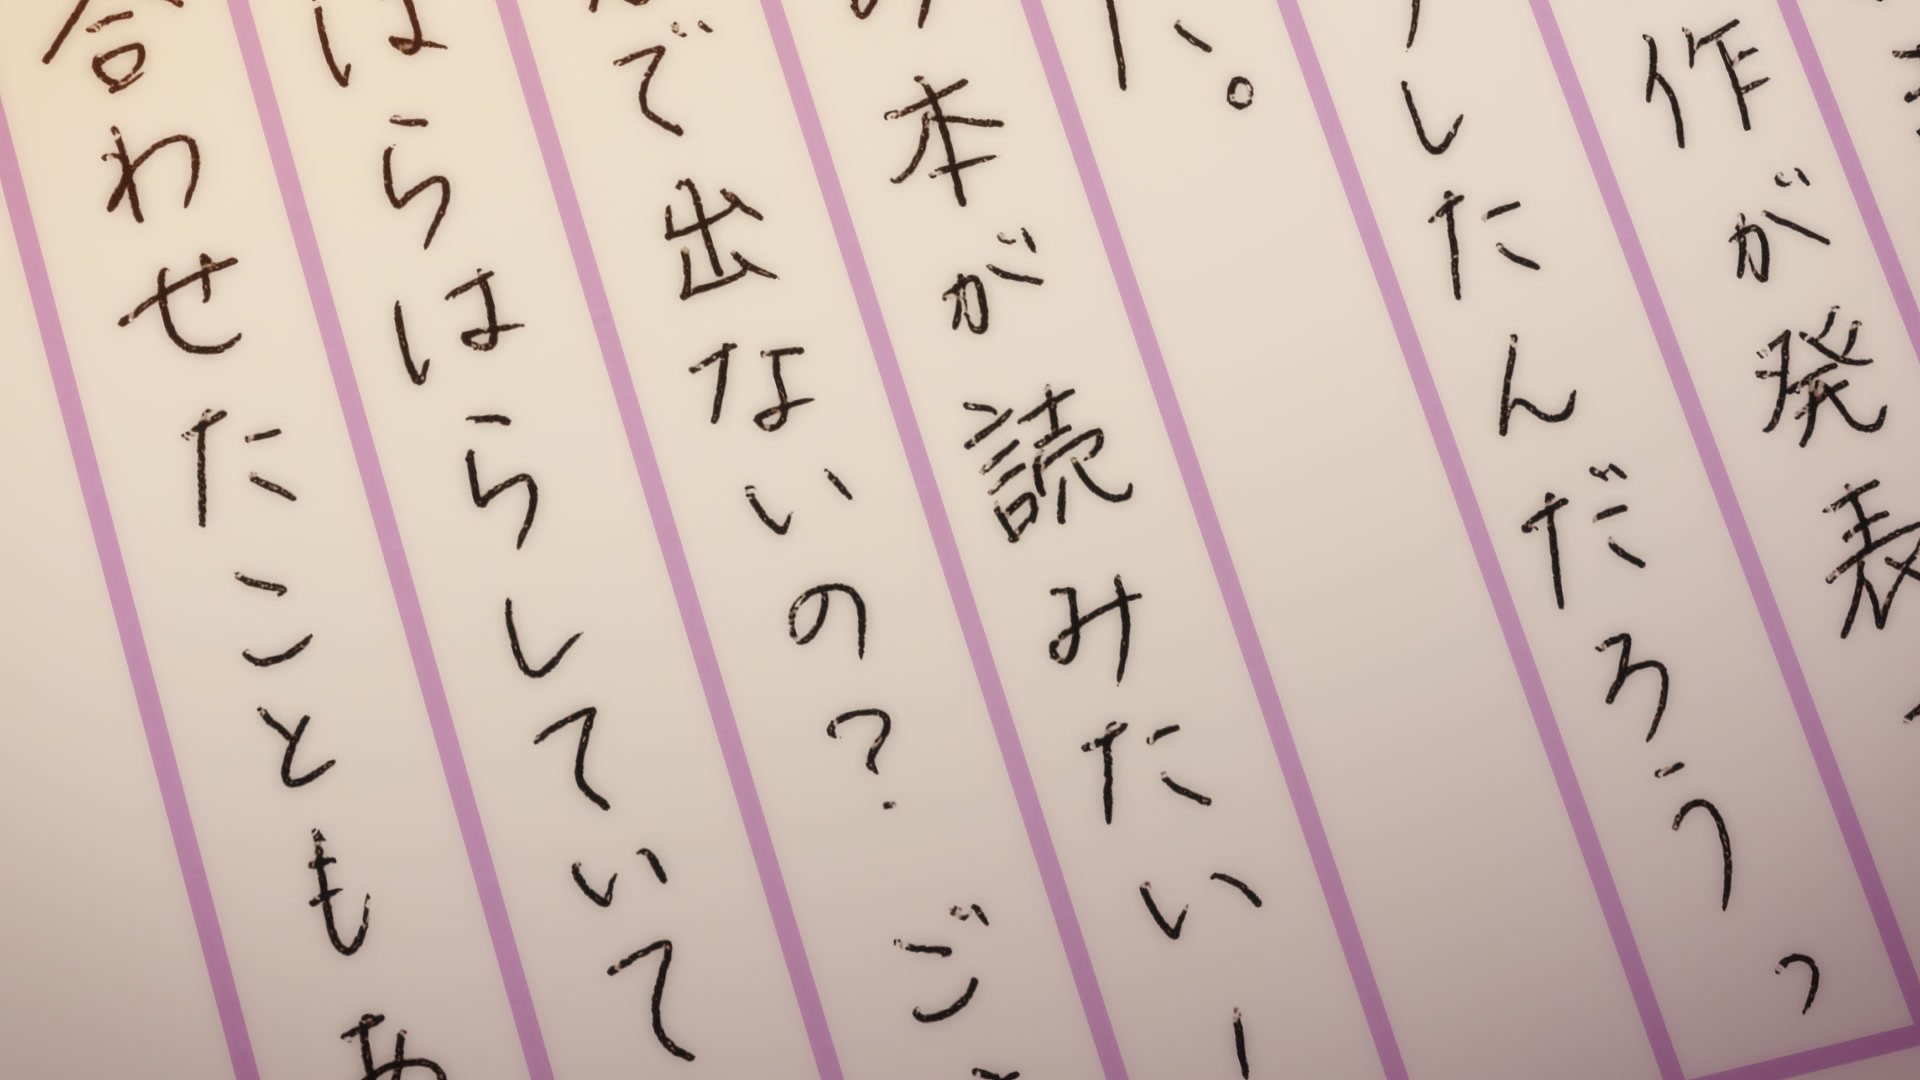 作が発表
したんだろうっ
た。
み本が読みたい
で出ないの?ご
はらはらしていて
合わせたこともあ